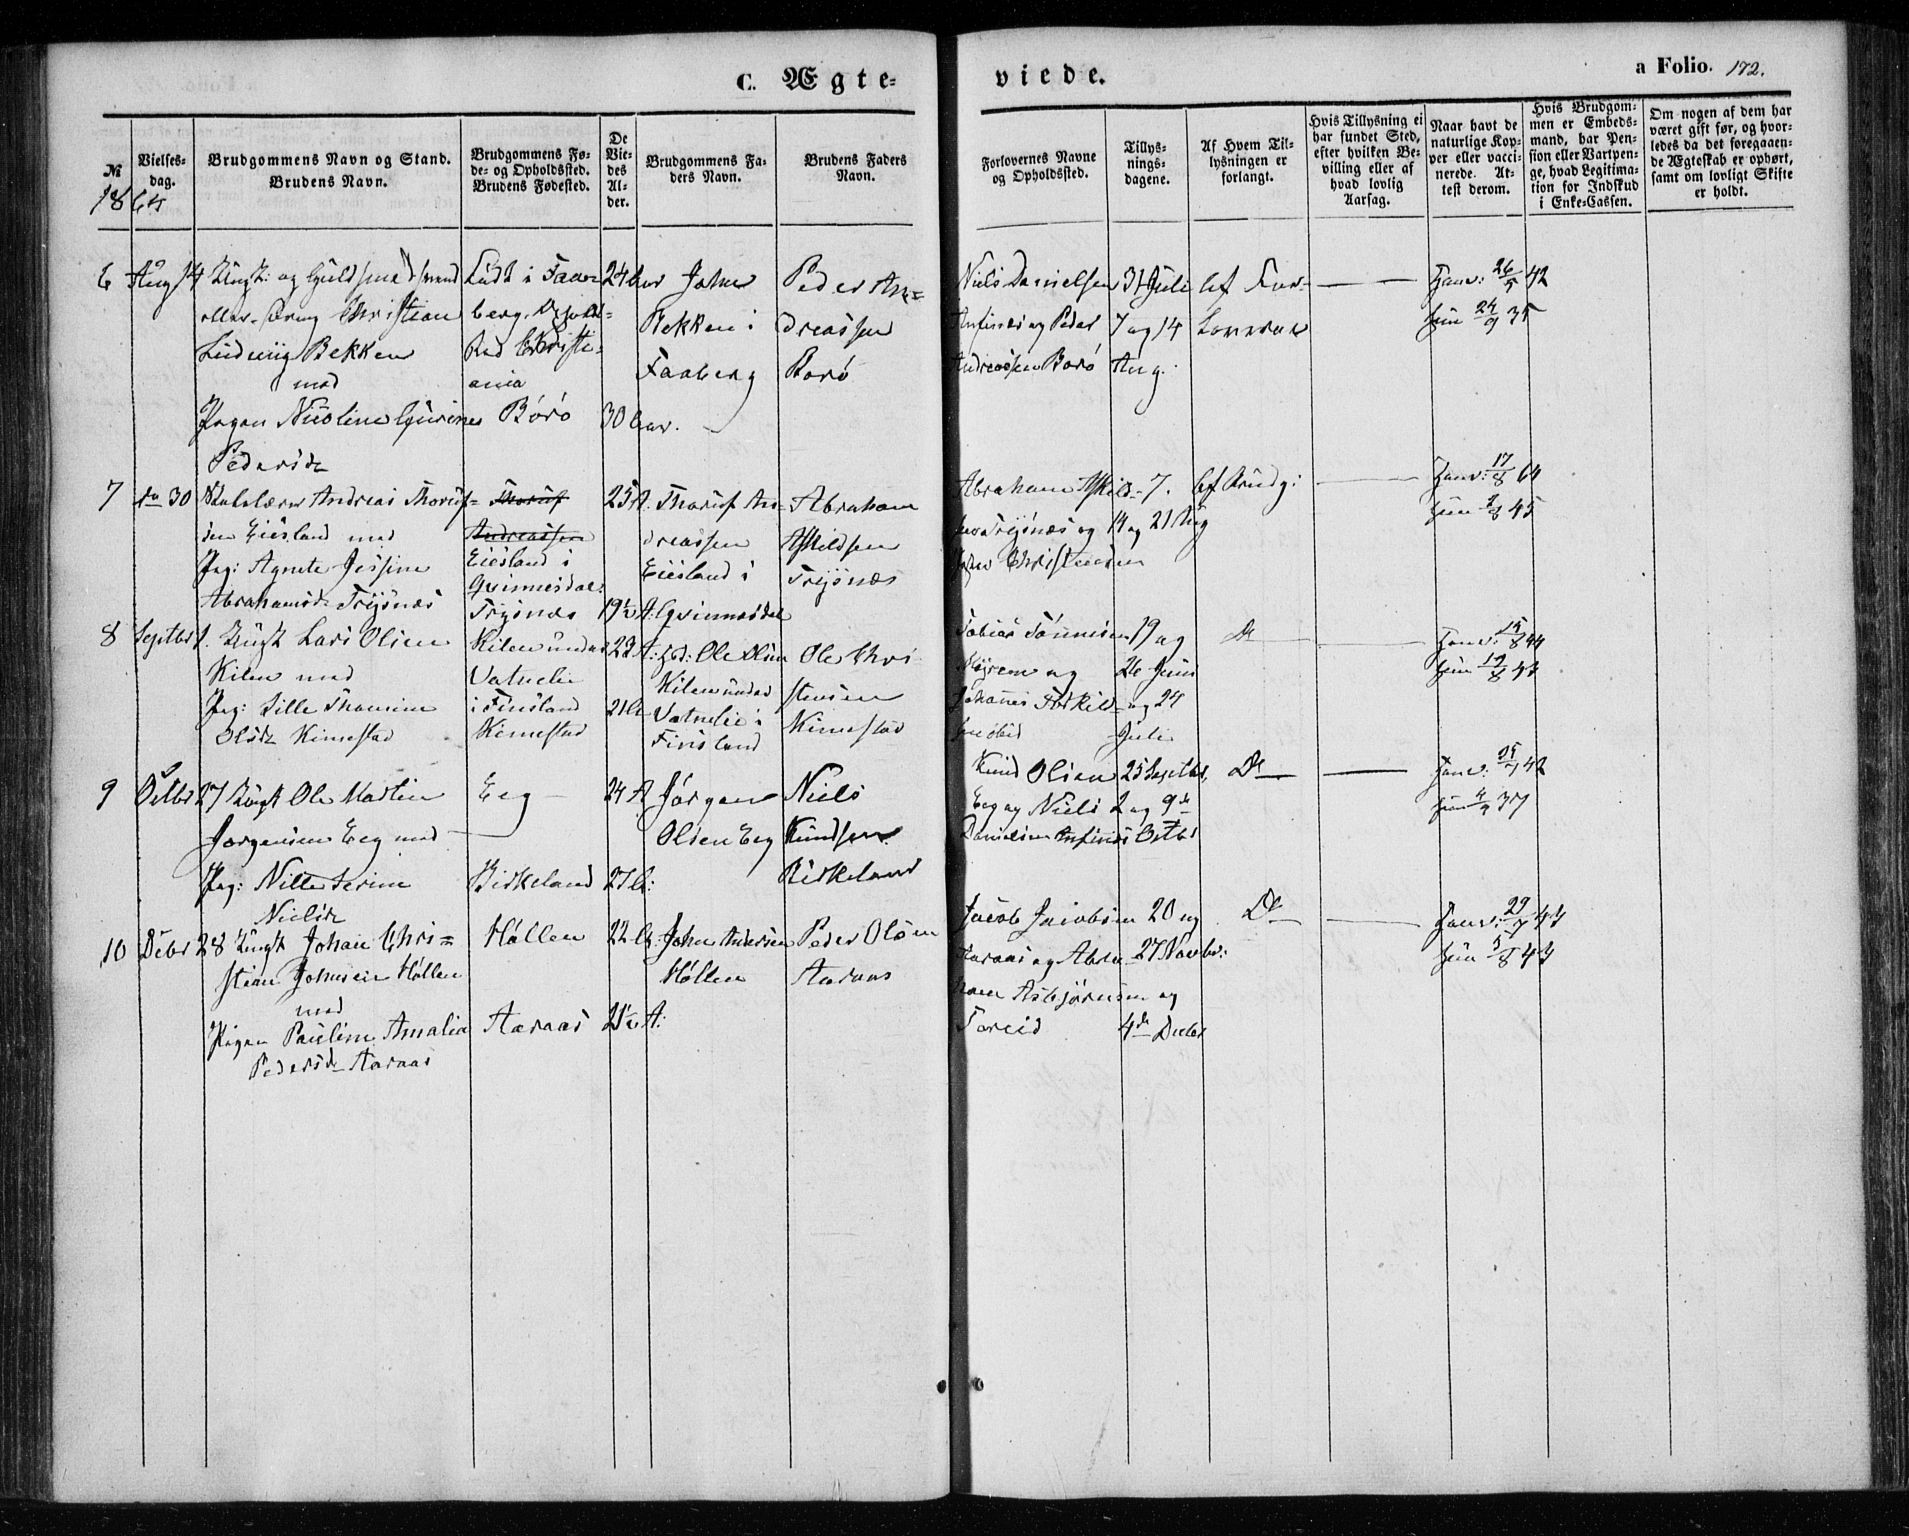 C. Ægte-
viede.
a Folio. 172.
№
Vielses-
dag.
Brudgommens Navn og Stand.
Brudens Navn.
Brudgommens Fø-
de- og Opholdssted.
Brudens Fødested.
De
Vie-
des
Al-
der.
Brudgommens Fa-
ders Navn.
Brudens Faders
Navn.
Forlovernes Navne
og Opholdssted.
Tillys-
nings-
dagene.
Af Hvem Til-
lysningen er
forlangt.
Hvis Tillysning ei
har fundet Sted,
efter hvilken Be-
villing eller af
hvad lovlig
Aarsag.
Naar havt de
naturlige Kop-
per eller vacci-
nerede. At-
test derom.
Hvis Brudgom-
men er Embeds-
mand, har Pen-
sion eller Vartpen-
ge, hvad Legitima-
tion for Indskud
i Enke-Cassen.
Om nogen af dem har
været gift før, og hvor-
ledes da det foregaaen-
de Ægteskab er ophørt,
samt om lovligt Skifte
er holdt.
1864
6
Aug 14
Ungk: og Guldsmedsvend
Christian
Ludvig Bekken
med
Pigen Nicoline Gurine
Pedersd
Født i Faa-
berg. Ophold-
Sted Christi-
ania
Børø
24 Aar
30 Aar.
John
Bekken i
Faaberg
Peder An-
dreassen
Børø
Niels Danielsen
Aufinæs og Peder
Andreassen Børø
31 Juli
7 og 14
Aug.
Af For-
loverne
Han: 26/5 42
Hun 24/9 35
7
do 30
Skolelærer Andreas Thoruf-
sen Eiesland med
Pig: Agnete Jessine
Abrahamsd Trysnæs
Thoruf
Andreassen
Eiesland i
Qvinnesdal
Trysnæs
25 A.
19½ A.
Thoruf An-
dreassen
Eiesland i
Qvinnesdal
Abraham
Askildsen
Trysnæs
Abraham Askild-
sen Trysnæs og
Christensen
7.
14 og 21 Aug
Af Brudg:
Han: 17/8 64
Hun 2/8 45
8
Septbr 1.
Ungk Lars Olsen
Kilen med
Pig: Sille Thomine
Olsd Kimestad
Kilen under
Vatnelie
i Finsland
Kimestad
23 A:
21 A
Ole Olsen
Kilen under
Vatnelie i
Finsland
Ole Chri-
stensen
Kimestad
Tobias Tønnesen
og
Johannes
19 og
26 Juni
og 24
Juli
Do
Han: 15/8 44
Hun 19/8 43
9
Octbr 27
Ungk Ole Martin
Jørgensen Eeg med
Pig: Nille Serine
Nielsd
Eeg
Birkeland
24 A
27 A:
Jørgen
Olsen Eeg
Niels
Knudsen
Birkeland
Knud Olsen
Eeg og Niels
Danielsen Aufinæs
25 Septbr,
2 og 9de
Octbr
Do
Han: 25/7 42
Hun 4/9 37
10
Decbr 28
Ungk Johan Chri-
stian Johnsen Høllen
med
Pigen Pauline Amalia
Pedersd Aaraas
Høllen
Aaraas
22 A.
21½ A:
John Andersen
Høllen
Peder Olsen
Aaraas
Jacob Jacobsen
Aaraas og Abra-
ham Asbjørnsen
20 og
27 Novbr:
4de Decbr
Do
Han: 29/7 44
Hun 5/8 44